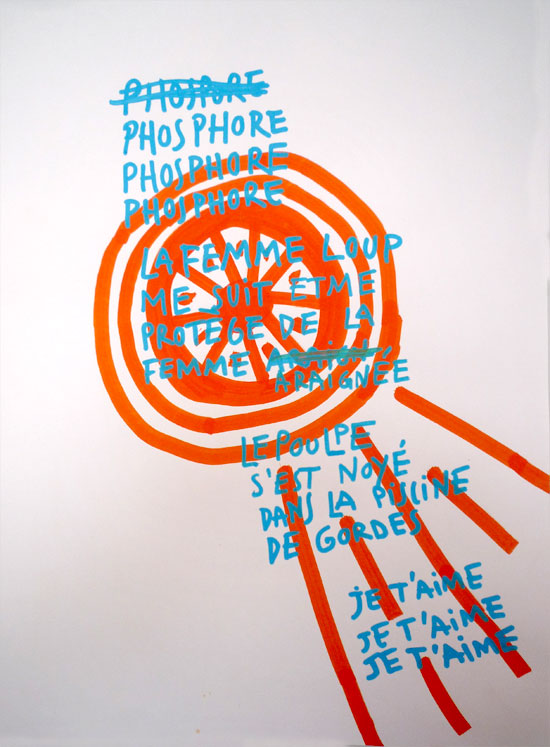 PHOSPORE
PHOSPHORE
PHOSPHORE
PHOSPHORE
LA FEMME LOUP
ME SUIT ET ME
PROTÈGE DE LA
FEMME
ARAIGNÉE
LE POULPE
S'EST NOYÉ
DANS LA PISCINE
DE GORDES
JE T'AIME
JE T'AIME
JE T'AIME